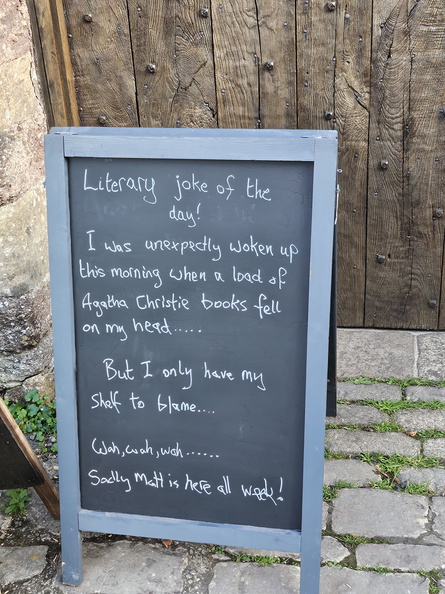 Literary joke of the
day!
I was unexpectly woken up
this morning when a load of
Agatha Christie books fell
on my head.....
But I only have my
shelf to blame....
Wah, wah, wah......
Sadly Matt is here all week!